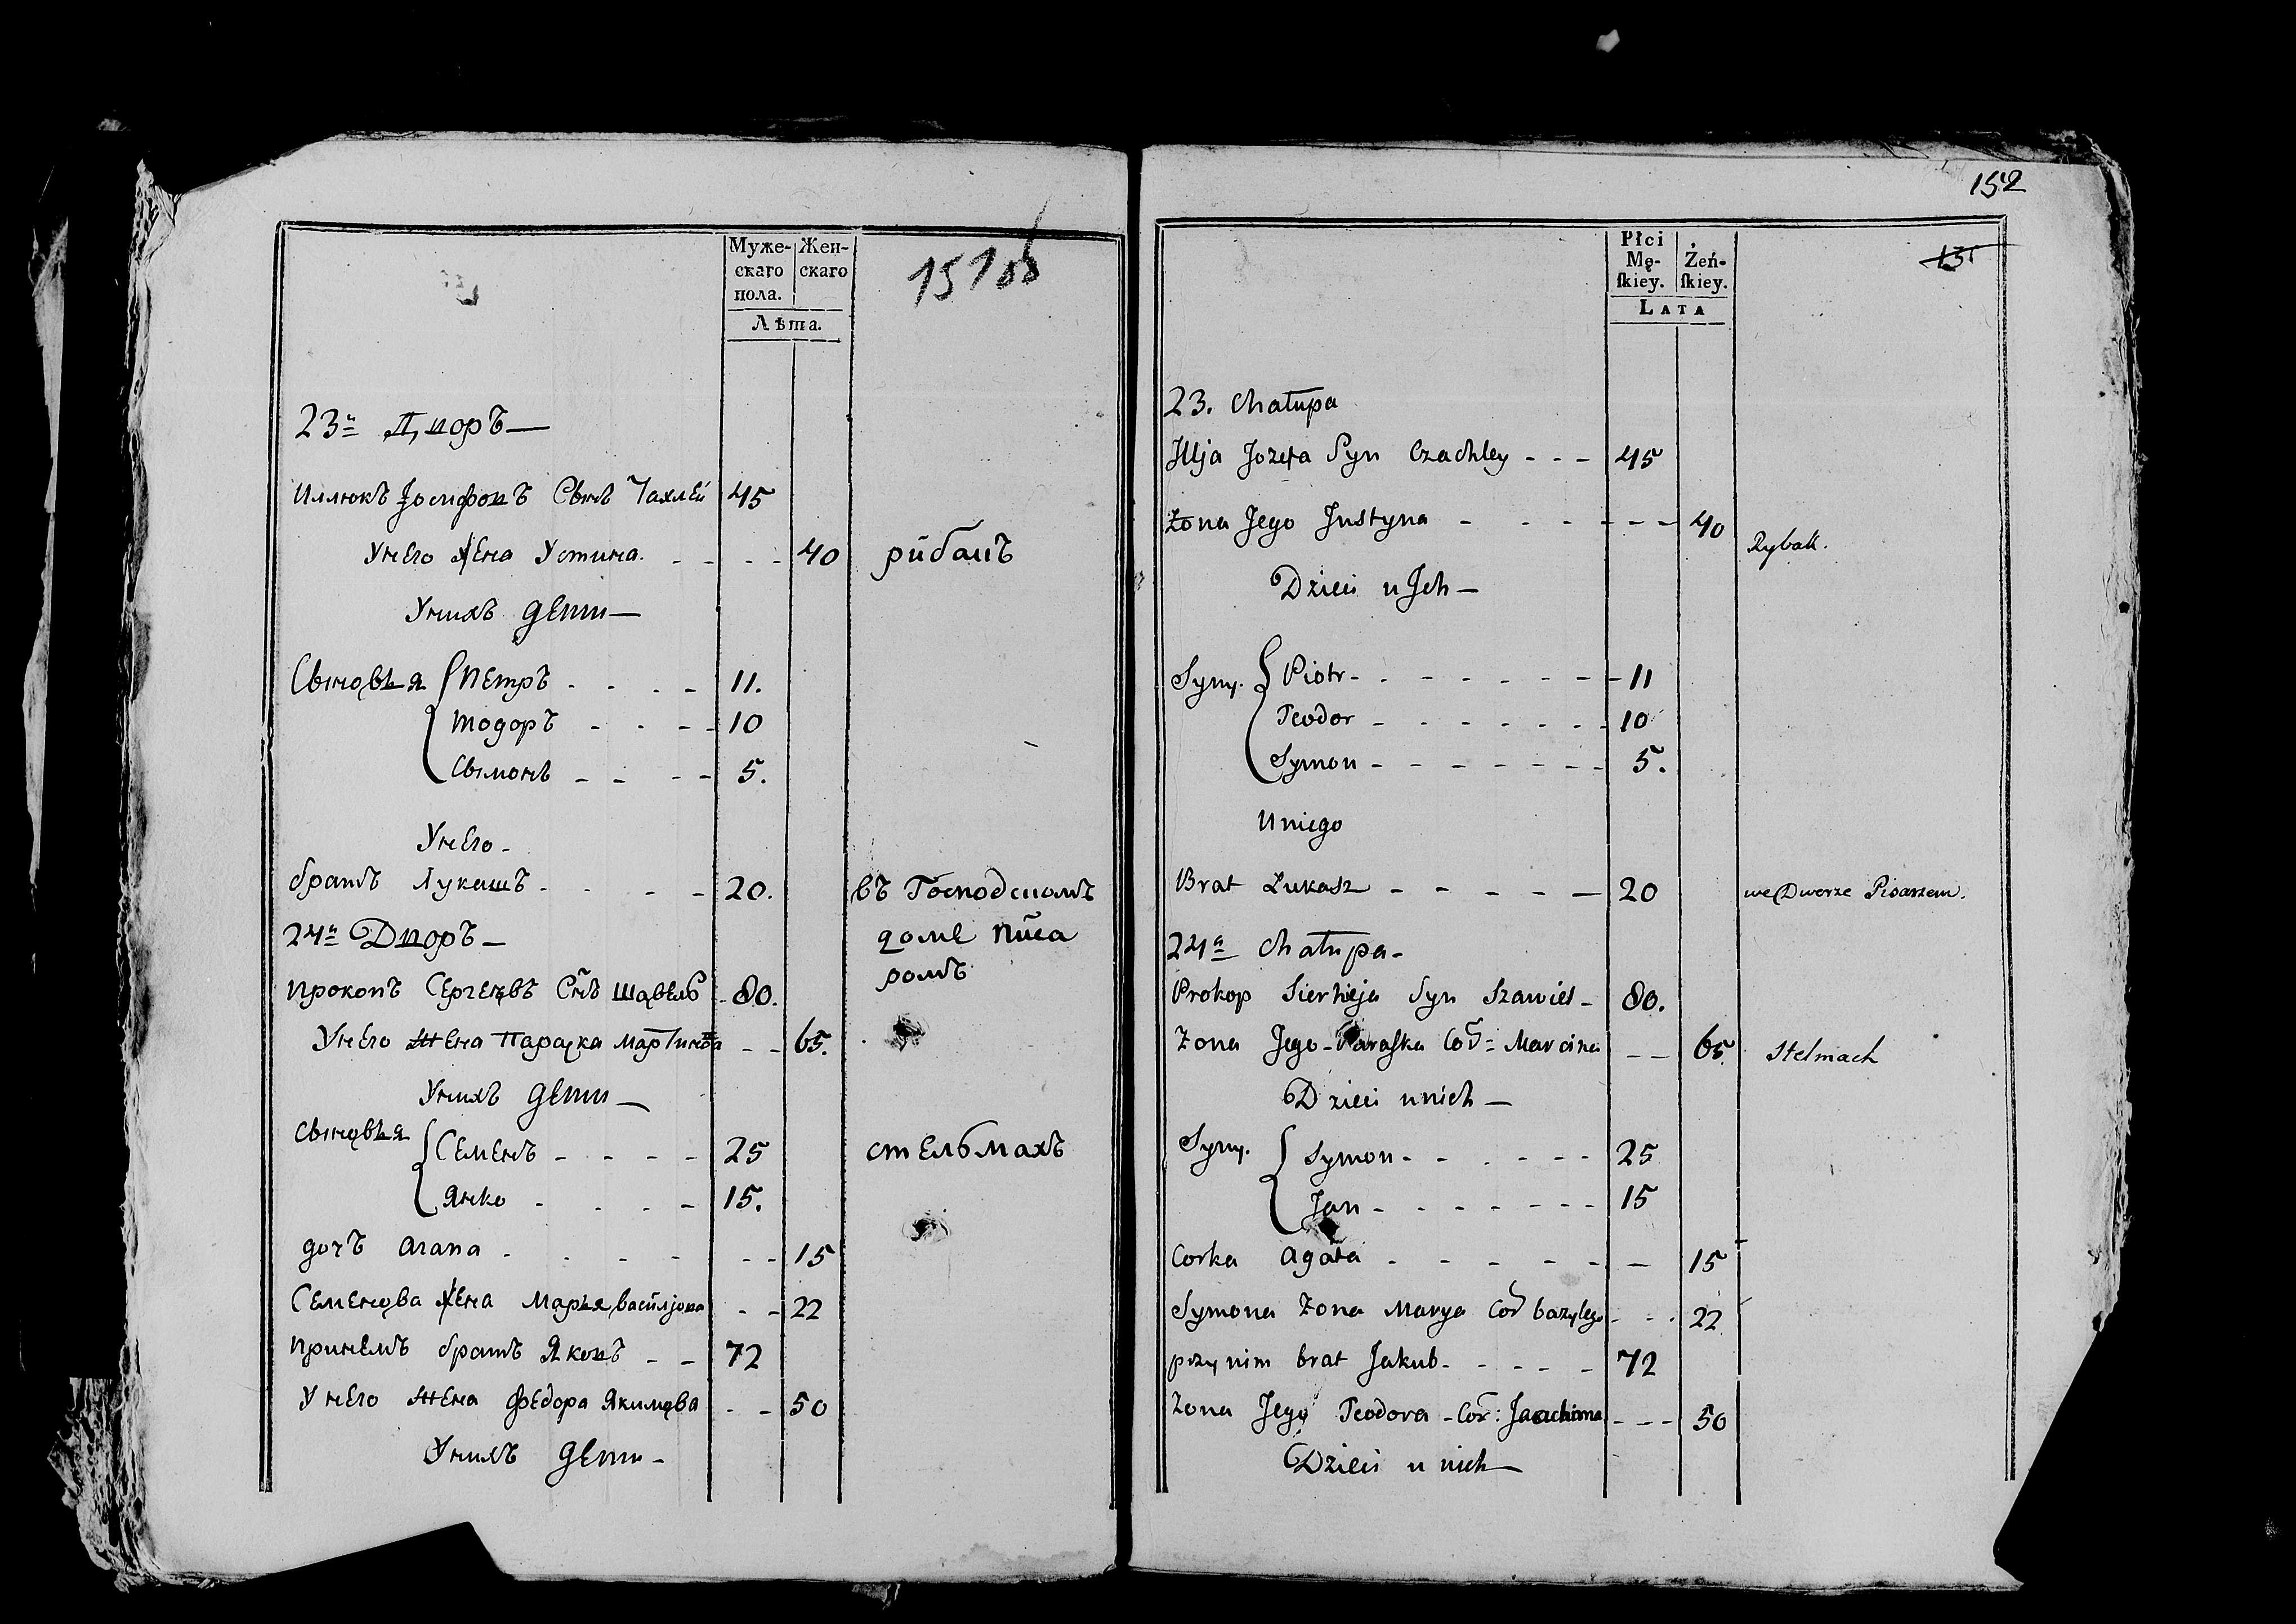 Муже-
скаго
пола.
Жен-
скаго
Лѣта.
151 об
23й Дворъ —
Иллюкъ Іосифовъ Сынъ Чахлей 45
Унего жена Устина. 40 рибакъ
Унихъ дети —
Сыновья Петръ 11.
тодоръ 10
Сымонъ 5.
Унего -
братъ Лукашъ 20. въ Господскомъ
доме писа
ромъ
24й Дворъ —
Прокопъ Сергеевъ Снъ Шавель 80.
Унего жена Параска Мартинова 65.
Унихъ дети —
сыновья Семенъ 25 стельмахъ
Янко 15.
дочъ Агата 15
Семенова жена Марья василюва 22
Принемъ братъ Яковъ 72
Унего жена Федора Якимова 50
Унихъ дети -
152
Płci
Mę-
ſkiey.
Żeń-
ſkiey.
Lata
23. Chałupa
Illja Jozefa Syn Czachley 45
Żona Jego Justyna 40 Rybak.
Dzieci u Ich —
Syny. Piotr 11
Teodor 10
Symon 5.
Uniego
Brat Łukasz 20 we Dworze Pisarzem.
24a Chałupa -
Prokop Sierhieja Syn Szawiel 80.
Żona Jego Paraſka Cor Marcina 65 Stelmach
Dzieci unich —
Syny. Symon 25
Jan 15
Corka Agata 15
Symona Żona Marya Cor bazylego 22
przynim brat Jakub 72
Żona Jego Teodora Cor: Jaachima 50
Dzieci u nich